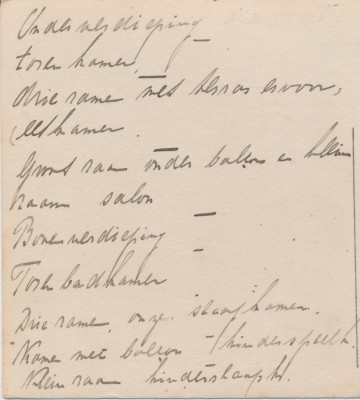 Onderverdieping –
toren kamer,
drie rame met terras ervoor,
eetkamer.
Groot raam onder balcon en klein
raam salon –
Bovenverdieping –
Toren badkamer
Drie rame, onze slaapkamer.
Kamer met balcon / kinderspeelk.
Klein raam kinderslaapk.